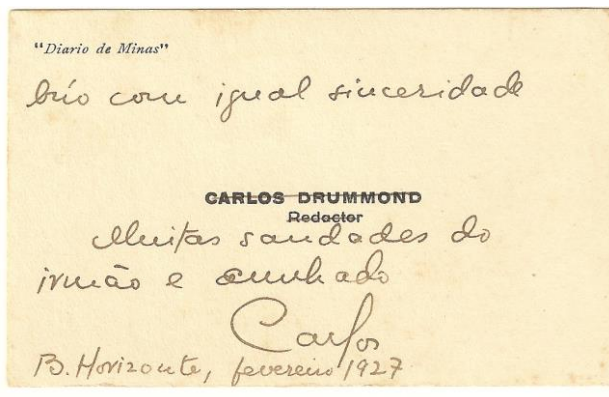 "Diario de Minas"
brio com igual sinceridade
CARLOS DRUMMOND
Redactor
Muitas saudades do
irmão e cunhado
Carlos
B. Horizonte, fevereiro 1927